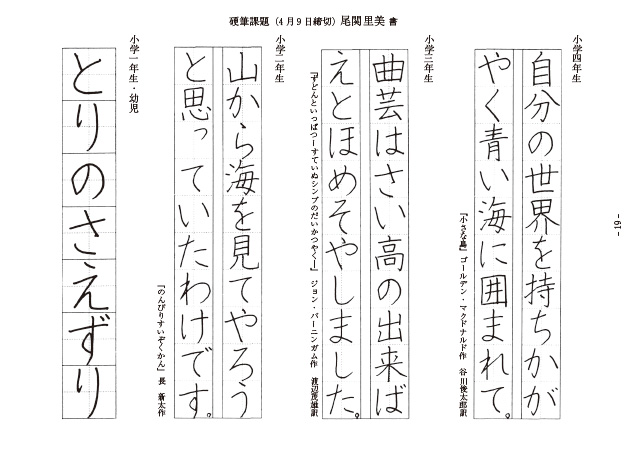 硬筆課題（4月9日締切）尾関里美 書
小学四年生
自分の世界を持ちかが
やく青い海に囲まれて。
『小さな島』 ゴールデン・マクドナルド作 谷川俊太郎訳
小学三年生
曲芸はさい高の出来ば
えとほめそやしました。
『ずどんといっぱつーすていぬシンプのだいかつやくー』 ジョン・バーニンガム作 渡辺茂雄訳
小学二年生
山から海を見てやろう
と思っていたわけです。
『のんびりすいぞくかん』 長 新太作
小学一年生・幼児
とりのさえずり
-19-